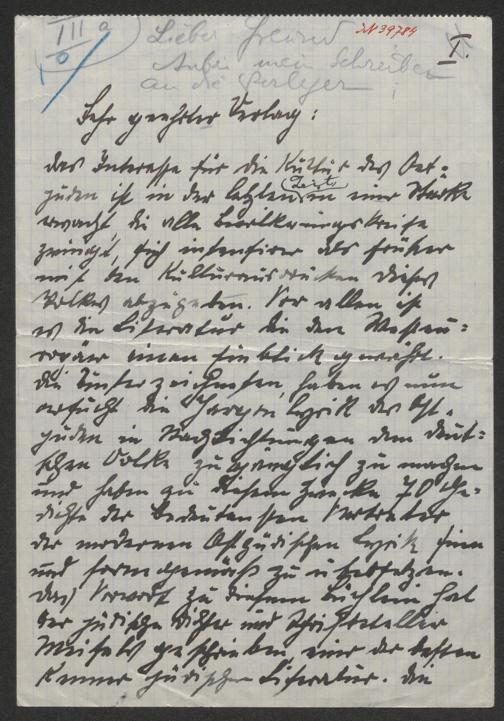 III a
0
IN 39784
I.
Lieber Freund
Anbei mein Schreiben
an die Verleger!
Sehr geehrter Verlag:
das Interesse für die Kultur des Ost-
juden ist in der letzten Zeit in einer Stärke
erwacht, die alle Bevölkerungskreise
zwingt, sich intensiver als früher
mit den Kulturausdrücken dieses
Volkes abzugeben. Vor allem ist
es die Literatur die den Westeu-
ropäer einen Einblick gewährt.
die Unterzeichneten haben es nun
versucht die Jargon Lyrik der Ost-
juden in Nachdichtungen dem deut-
schen Volke zugänglich zu machen
und haben zu diesem Zwecke 70 Ge-
dichte der bedeutensten Vertreter
der modernen Ostjüdischen Lyrik sinn
und formgemäß zu übersetzen.
das Vorwort zu diesem Büchlein hat
der jüdische Dichter und Schriftsteller
Meisels geschrieben, einer der besten
Kenner jüdischer Literatur. die